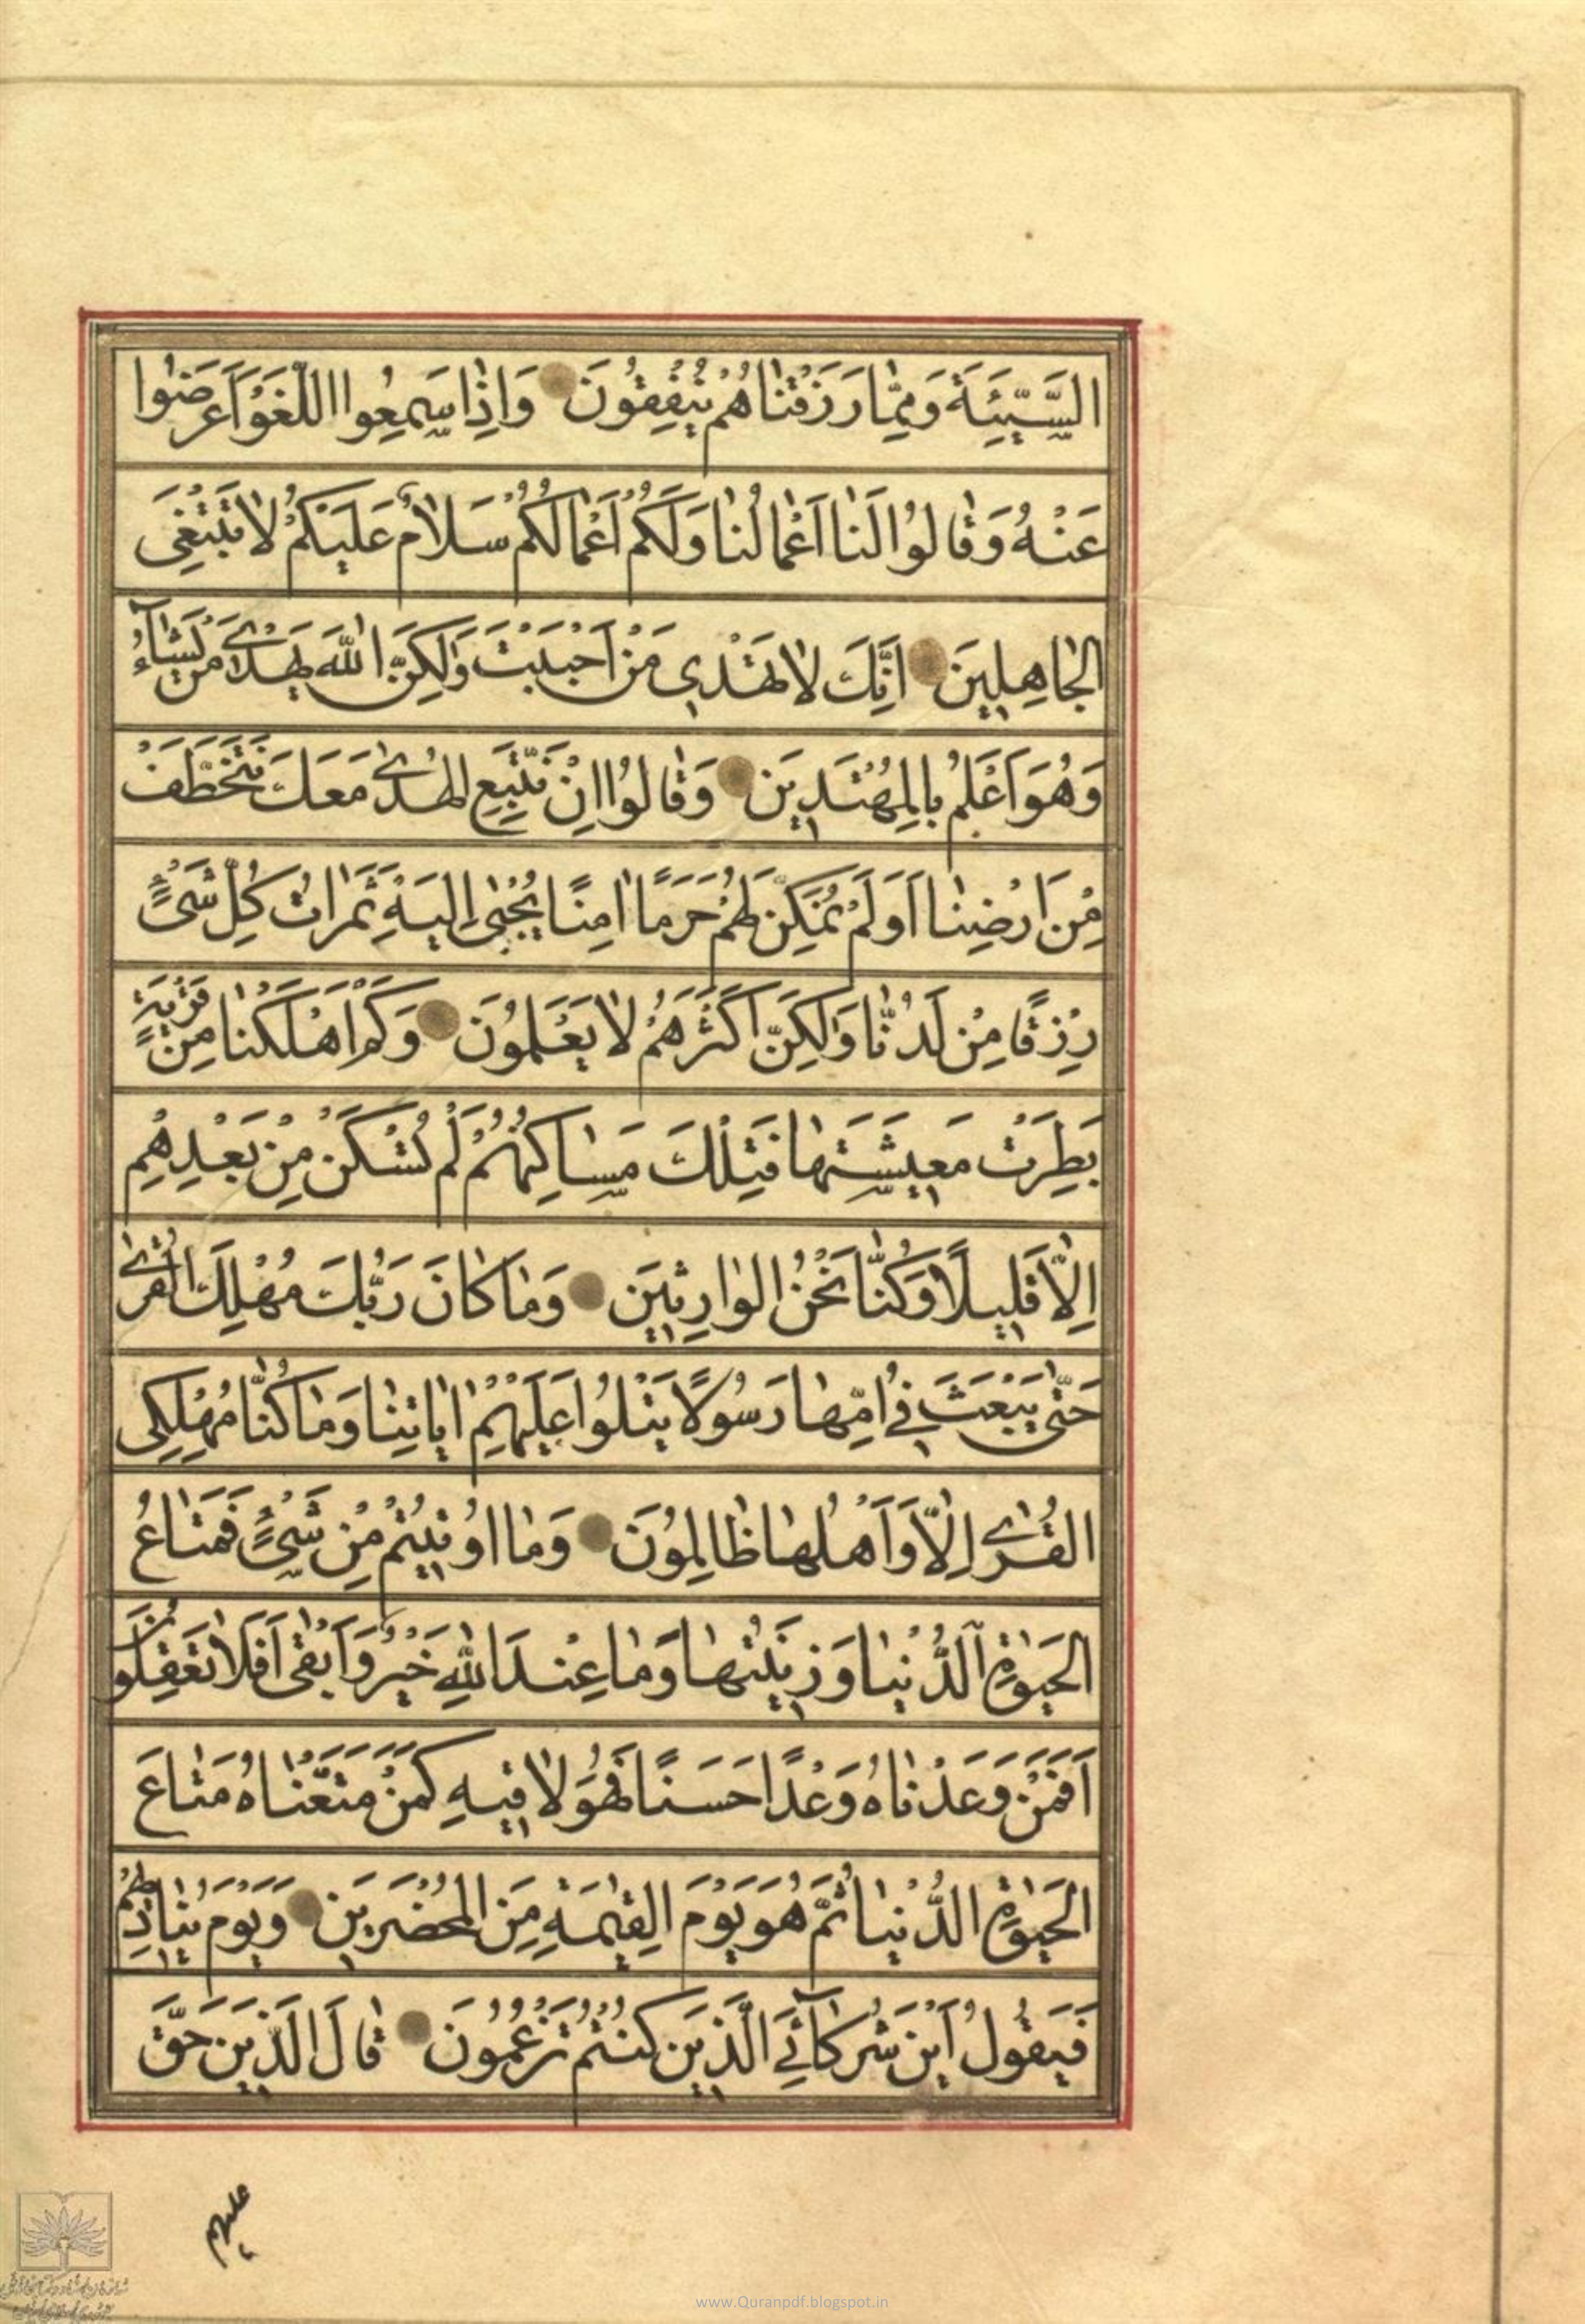 السَّيِّئَةَ وَمِمَّا رَزَقْنَاهُمْ يُنْفِقُونَ وَاِذَا سَمِعُوا اللَّغْوَ اَعْرَضُوا
عَنْهُ وَقَالُوا لَنَا اَعْمَالُنَا وَلَكُمْ اَعْمَالُكُمْ سَلَامٌ عَلَيْكُمْ لَا نَبْتَغِى
الْجَاهِلِينَ اِنَّكَ لَا تَهْدِي مَنْ اَحْبَبْتَ وَلٰكِنَّ اللّٰهَ يَهْدِي مَنْ يَشَاۤءُ
وَهُوَ اَعْلَمُ بِالْمُهْتَدِينَ وَقَالُوا اِنْ نَتَّبِعِ الْهُدٰى مَعَكَ نُتَخَطَّفْ
مِنْ اَرْضِنَا اَوَلَمْ نُمَكِّنْ لَهُمْ حَرَمًا اٰمِنًا يُجْبٰى اِلَيْهِ ثَمَرَاتُ كُلِّ شَىْءٍ
رِزْقًا مِنْ لَدُنَّا وَلٰكِنَّ اَكْثَرَهُمْ لَا يَعْلَمُونَ وَكَمْ اَهْلَكْنَا مِنْ قَرْيَةٍ
بَطِرَتْ مَعِيشَتَهَا فَتِلْكَ مَسَاكِنُهُمْ لَمْ تُسْكَنْ مِنْ بَعْدِهِمْ
اِلَّا قَلِيلًا وَكُنَّا نَحْنُ الْوَارِثِينَ وَمَا كَانَ رَبُّكَ مُهْلِكَ الْقُرٰى
حَتّٰى يَبْعَثَ فِى اُمِّهَا رَسُولًا يَتْلُوا عَلَيْهِمْ اٰيَاتِنَا وَمَا كُنَّا مُهْلِكِى
الْقُرٰى اِلَّا وَاَهْلُهَا ظَالِمُونَ وَمَا اُوتِيتُمْ مِنْ شَىْءٍ فَمَتَاعُ
الْحَيٰوةِ الدُّنْيَا وَزِينَتُهَا وَمَا عِنْدَ اللّٰهِ خَيْرٌ وَاَبْقٰى اَفَلَا تَعْقِلُونَ
اَفَمَنْ وَعَدْنَاهُ وَعْدًا حَسَنًا فَهُوَ لَاقِيهِ كَمَنْ مَتَّعْنَاهُ مَتَاعَ
الْحَيٰوةِ الدُّنْيَا ثُمَّ هُوَ يَوْمَ الْقِيٰمَةِ مِنَ الْمُحْضَرِينَ وَيَوْمَ يُنَادِيهِمْ
فَيَقُولُ اَيْنَ شُرَكَاۤئِيَ الَّذِينَ كُنْتُمْ تَزْعُمُونَ قَالَ الَّذِينَ حَقَّ
عليهم
www.Quranpdf.blogspot.in